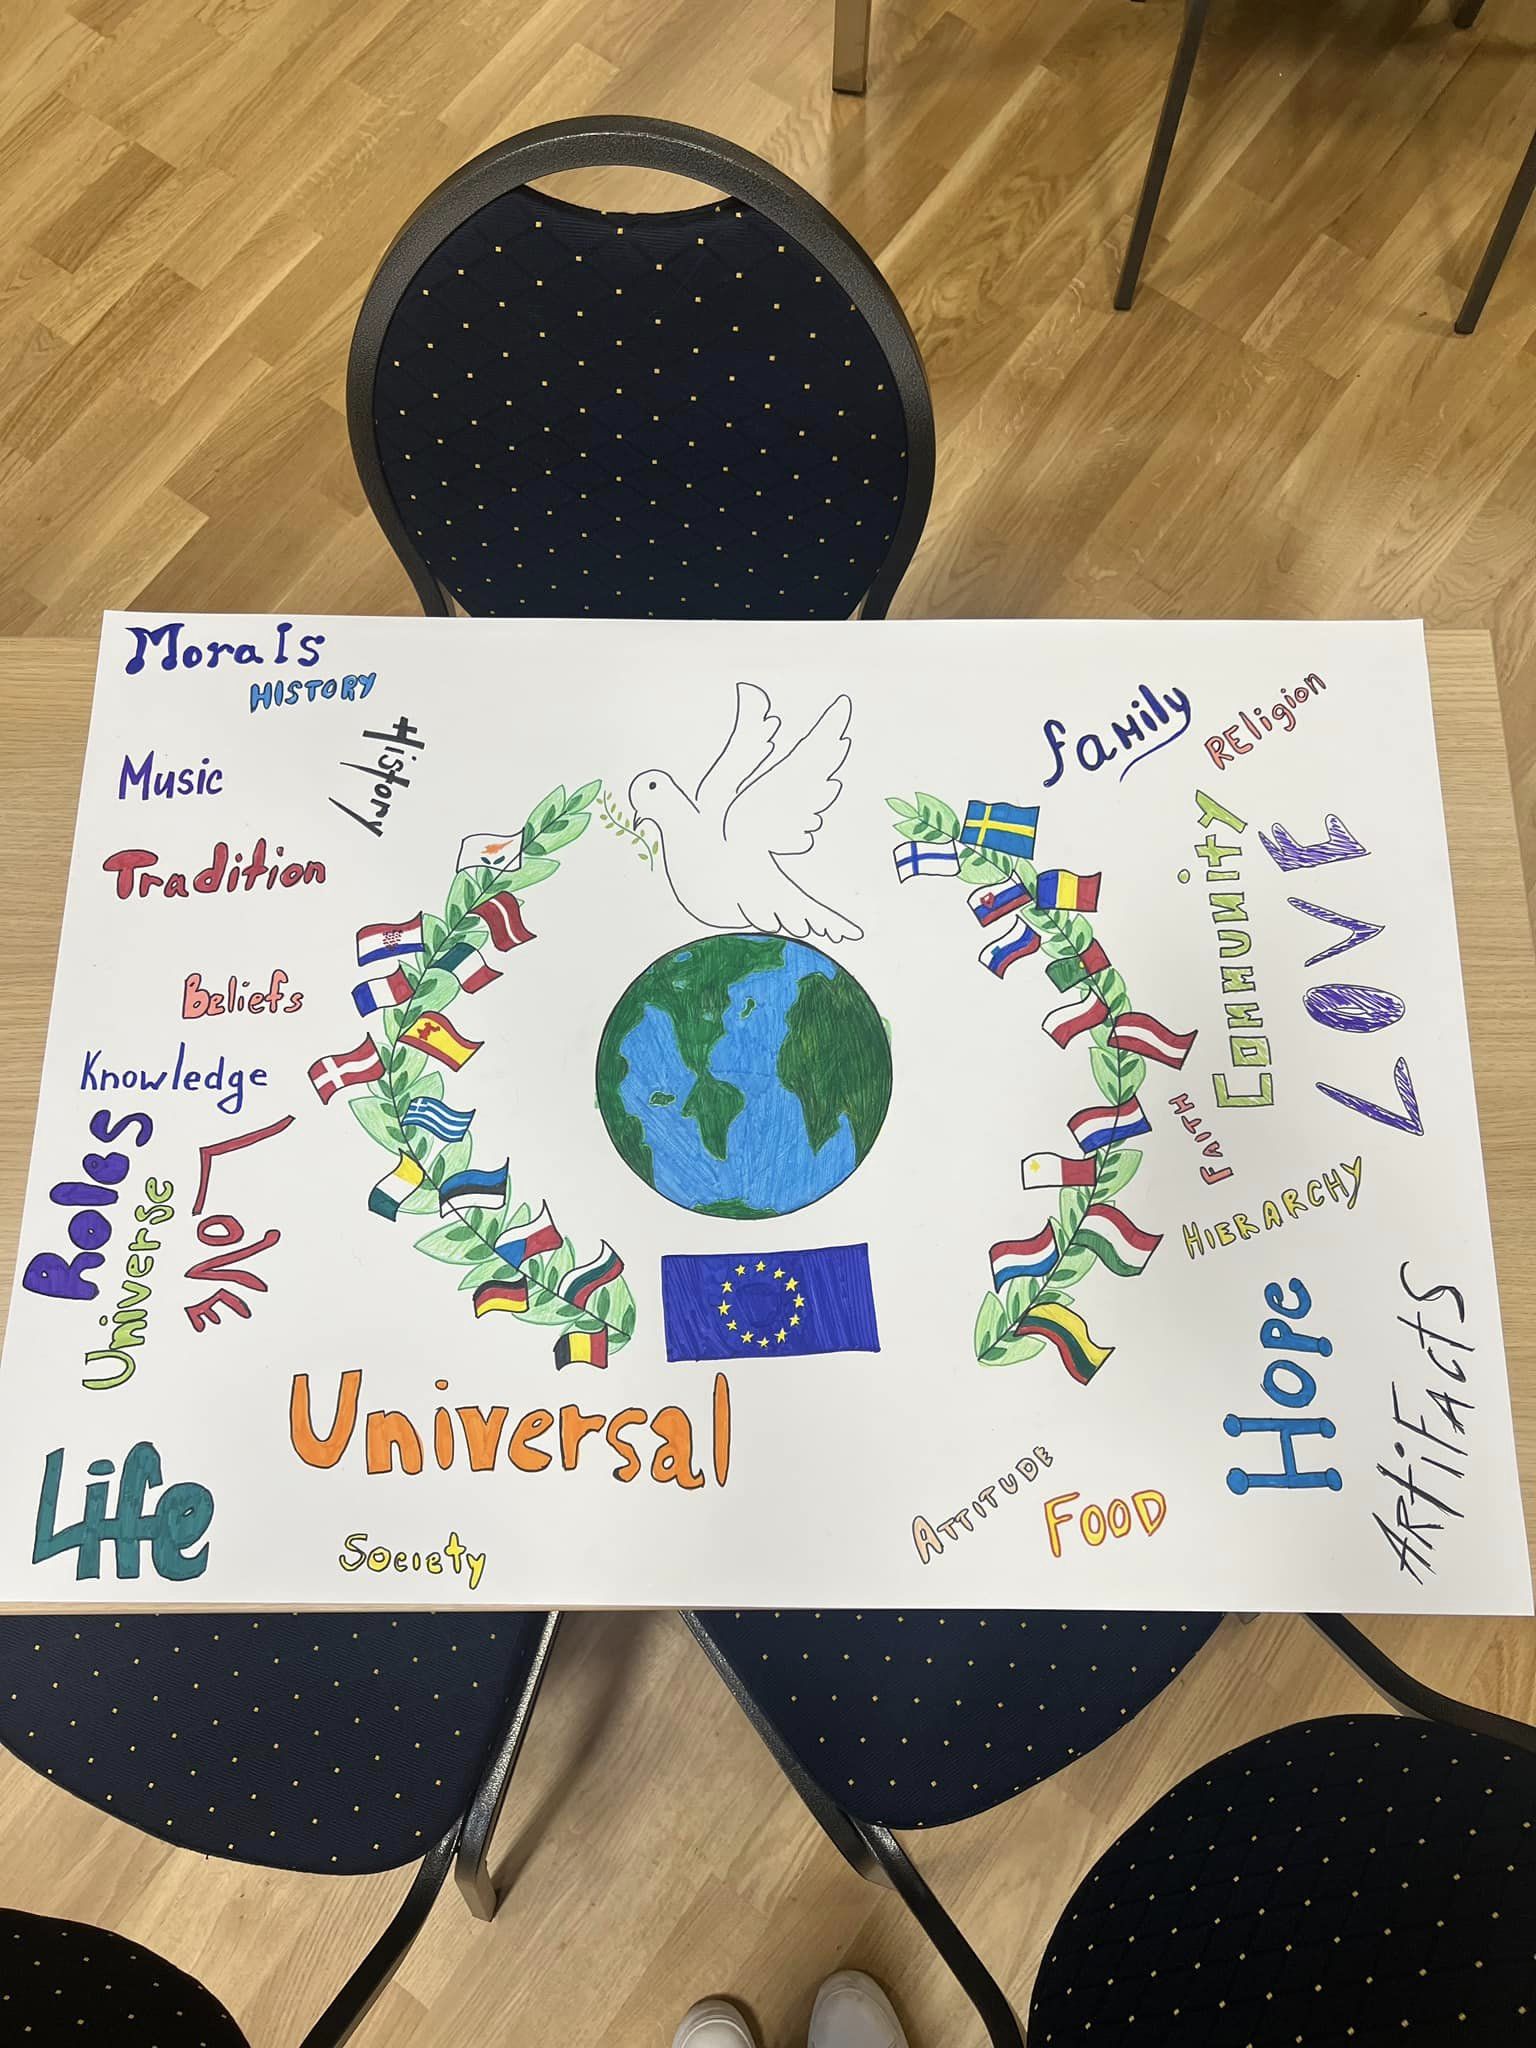 Morals
HISTORY
History
Music
Tradition
Beliefs
Knowledge
Roles
Universe
LOVE
Universal
Life
Society
family
REligion
Community
LOVE
FAITH
HIERARCHY
Hope
ARtiFActS
ATTITUDE
FOOD